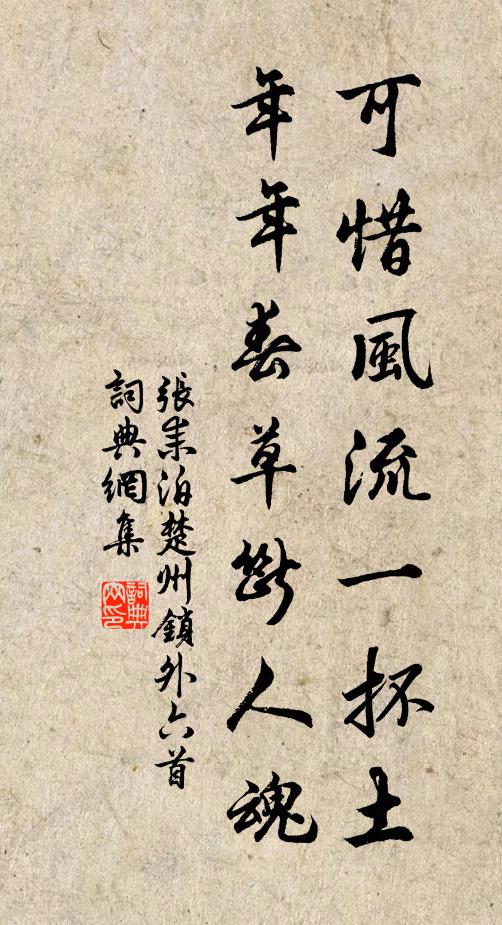 可惜風流一抔土
年年春草斷人魂
張耒泊楚州鎖外六首
詞典網集
詞典网印